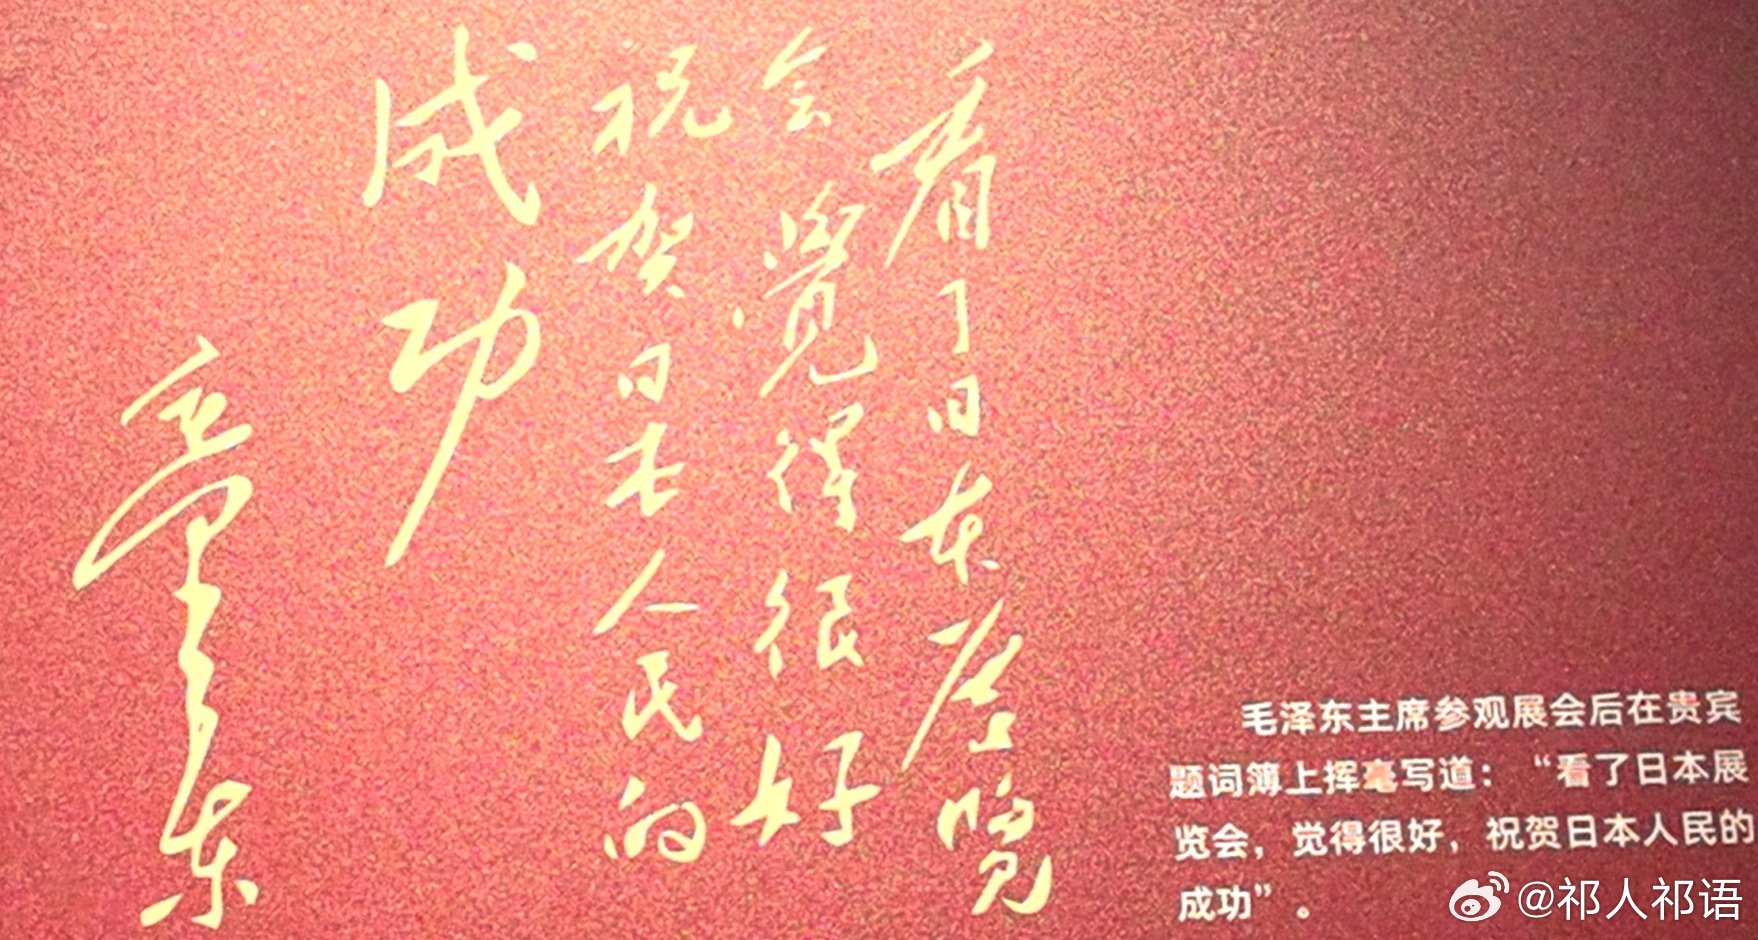 看了日本展览
会觉得很好
祝贺日本人民的
成功
毛泽东
毛泽东主席参观展会后在贵宾
题词簿上挥毫写道：“看了日本展
览会，觉得很好，祝贺日本人民的
成功”。
@祁人祁语